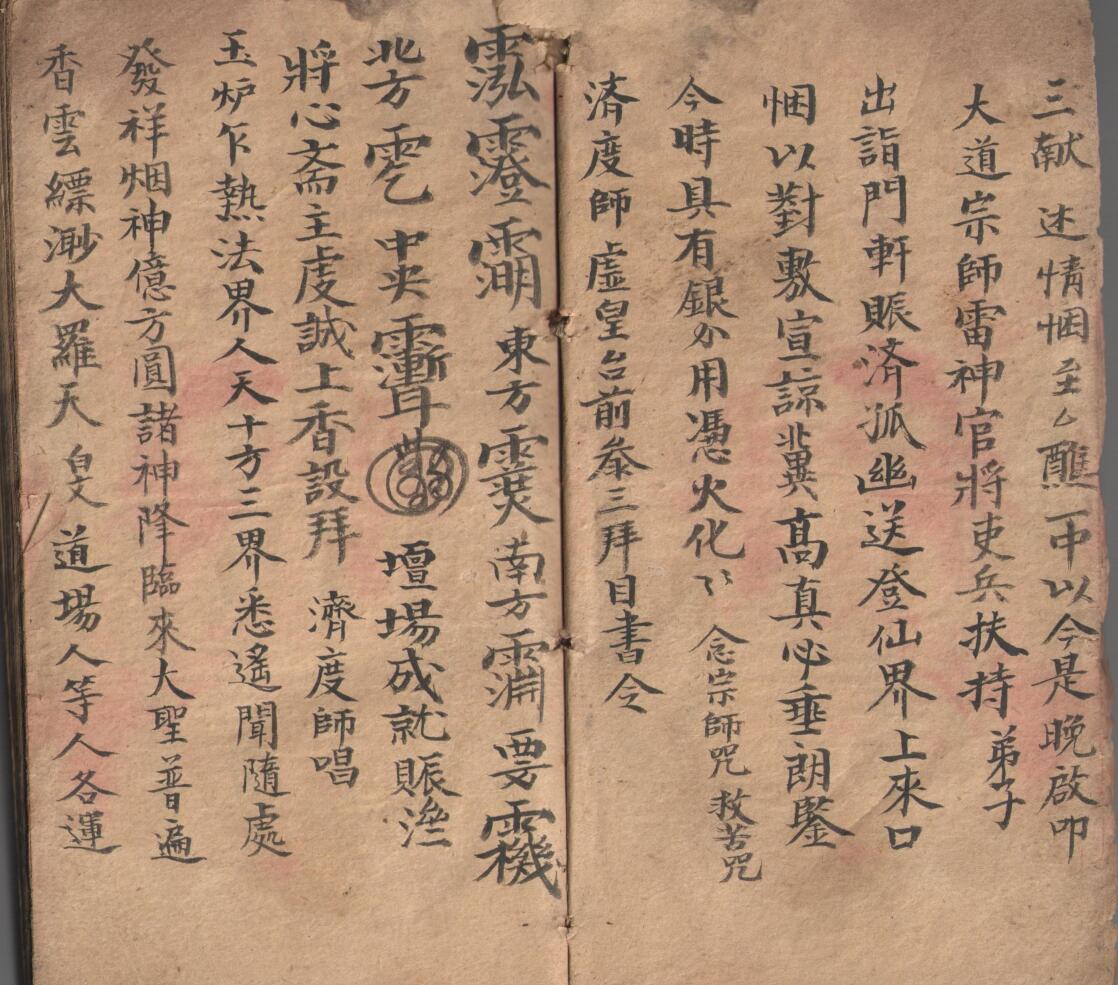 三献 述情悃至么醮一中以今是晚啟叩
大道宗師雷神官將吏兵扶持弟子
出詣門軒賑济孤幽送登仙界上來口
悃以對敷宣諒冀髙真必垂朗鑒
今時具有銀分用憑火化 念宗師咒 救苦咒
済度師虛皇台前叅三拜目書令
東方 南方
北方 中央 壇場成就賑
將心斋主虔誠上香設拜 濟度師唱
玉炉乍熱法界人天十方三界悉遙聞隨處
發祥烟神億方圓諸神降臨來大聖普遍
香雲縹渺大羅天 道場人等人各運